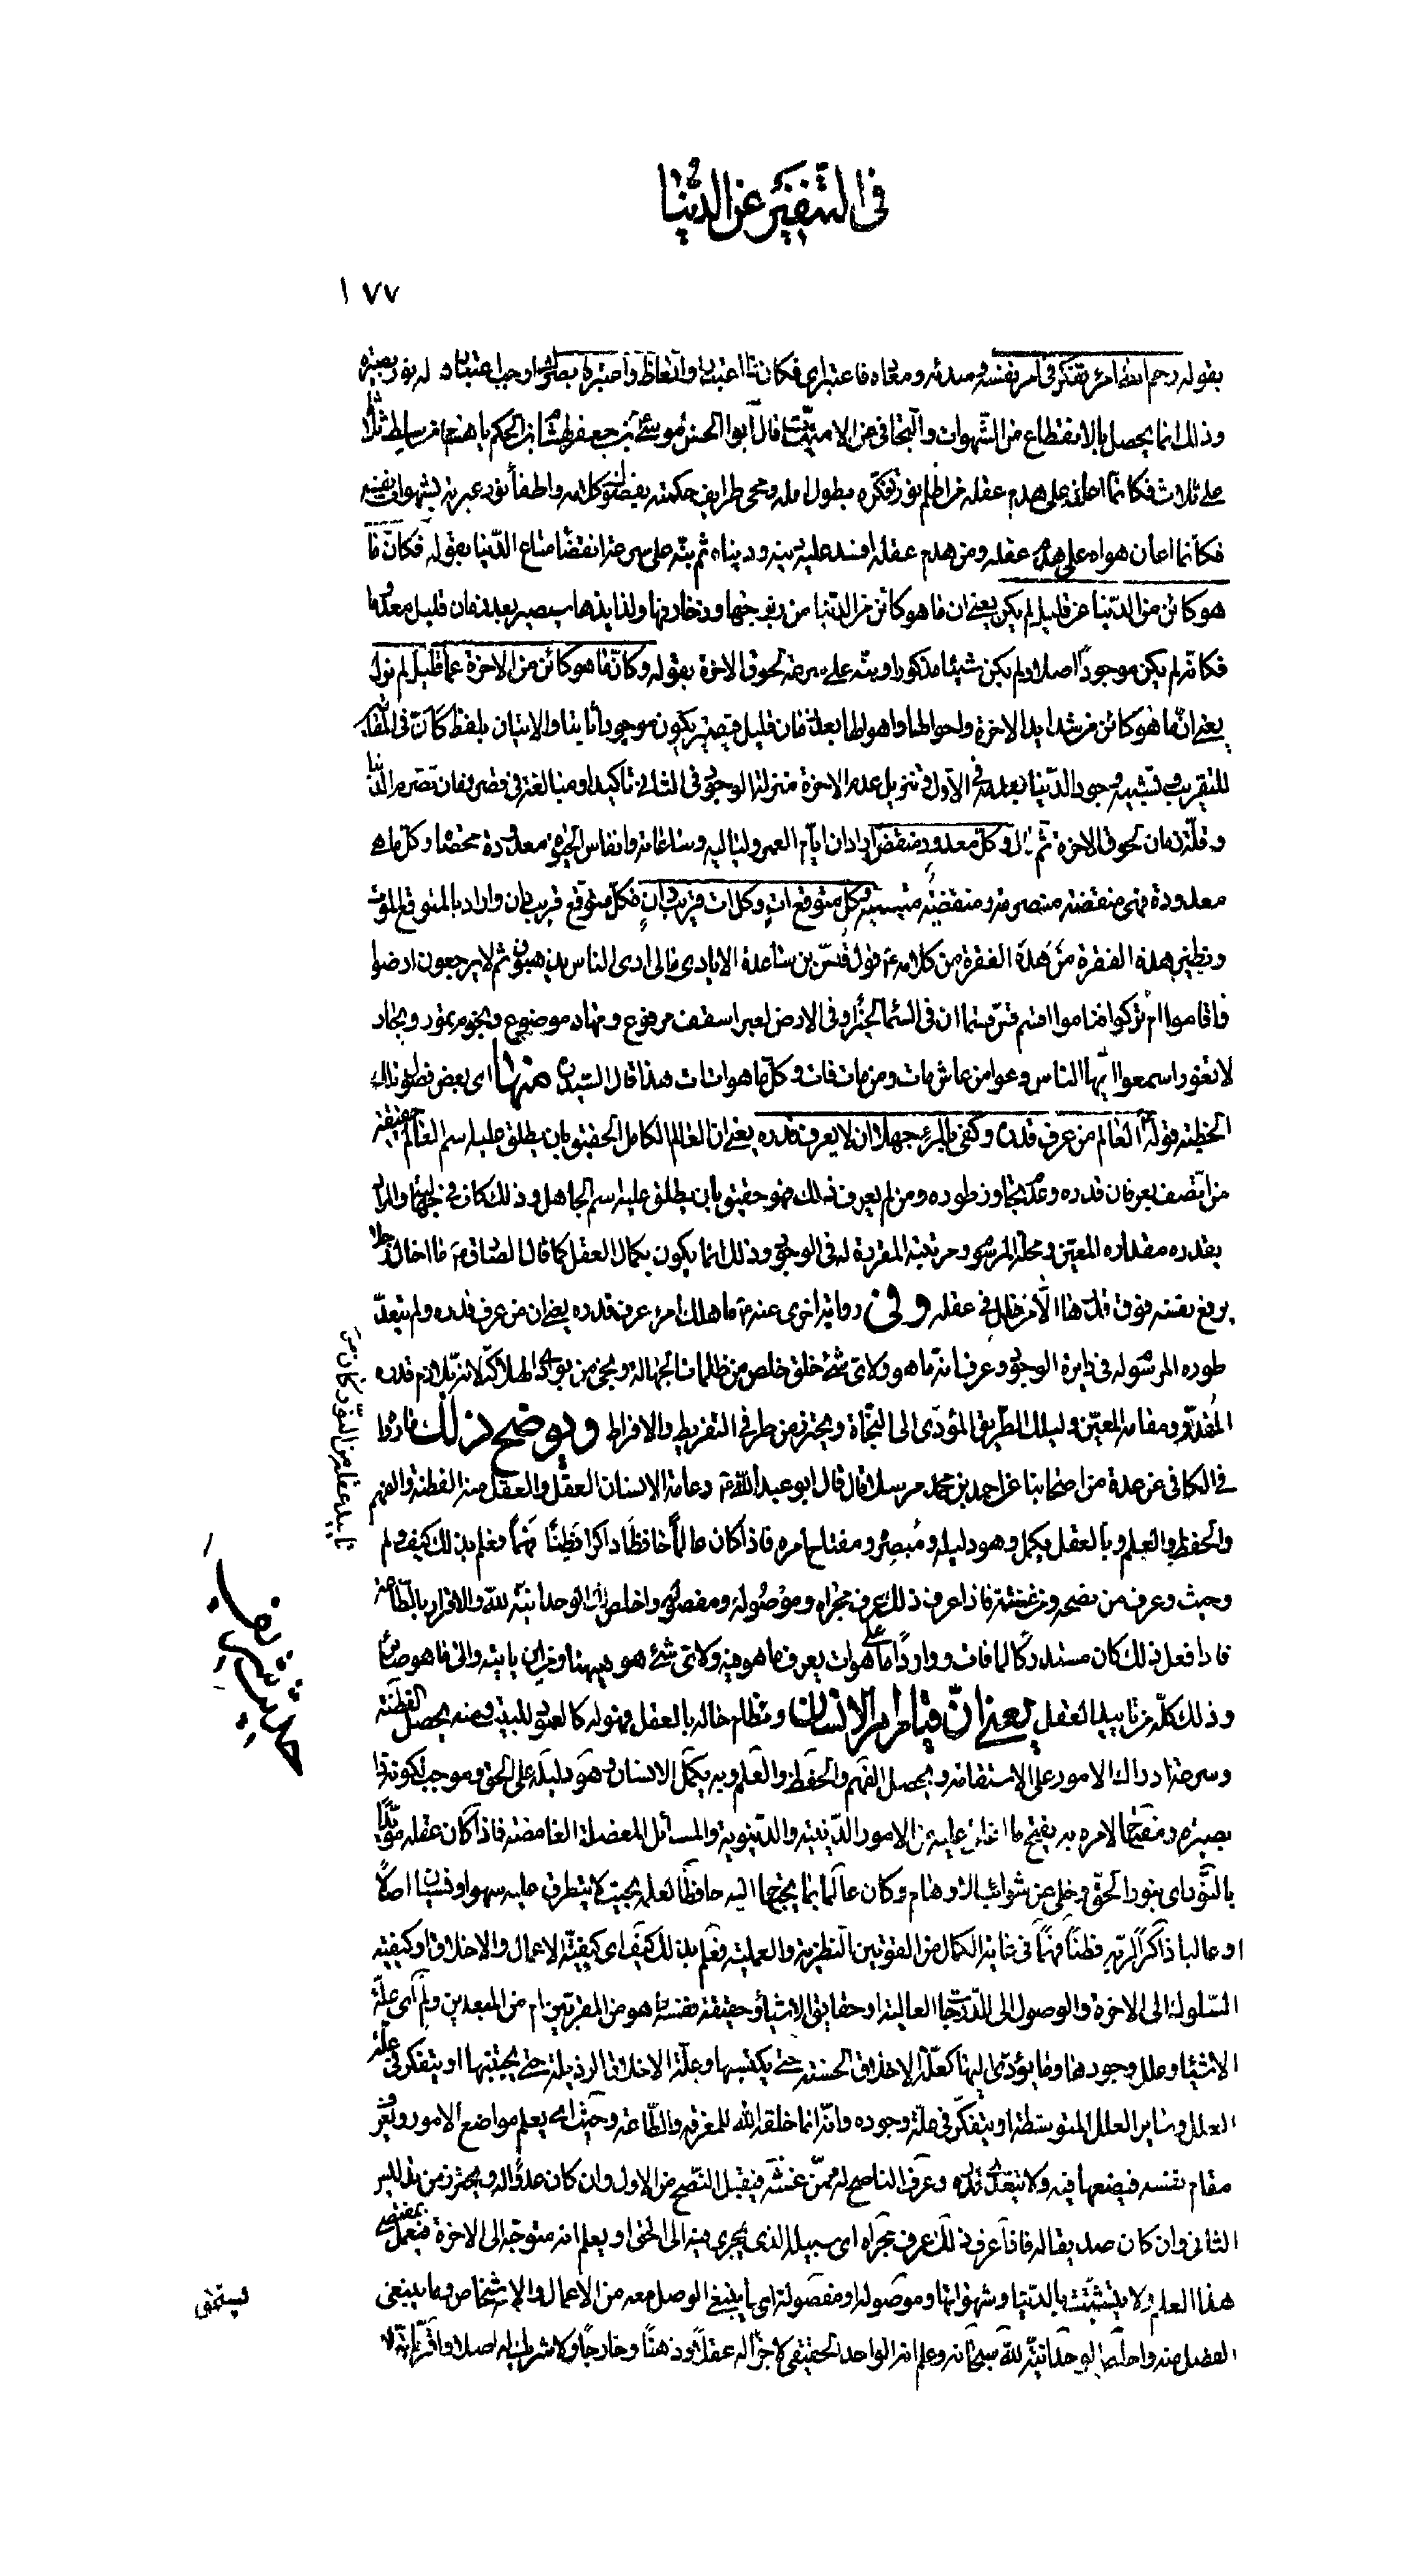 فى التنفير عن الدنيا
١٧٧
بقوله رحم الله امرء تفكر فى امر نفسه و مبدئه و معاده فاعتبر اى فكان له اعتبار و اتعاظ و اعتبر فابصر اى اوجب اعتباره له نور بصيرة
وذلك انما يحصل بالانقطاع من الشهوات والتجافى عن الامنيات قال ابو الحسن موسى بن جعفر لهشام بن الحكم يا هشام من سلط ثلاثا
على ثلاث فكانما اعان على هدم عقله من اظلم نور تفكره بطول امله و محى طرايف حكمته بفضول كلامه و اطفأ نور عبرته بشهوات نفسه
فكانما اعان هواه على هدم عقله ومن هدم عقله افسد عليه دينه ودنياه ثم نبّه على سرعة انقضاء متاع الدنيا بقوله فكان ما
هو كائن من الدنيا عن قليل لم يكن يعنى ان ما هو كائن من الدنيا من زبرجها و زخارفها ولذايذها سيصير بعد زمان قليل معدوما
فكانه لم يكن موجودا اصلا ولم يكن شيئا مذكورا و نبّه على سرعة لحوق الاخرة بقوله وكان ما هو كائن من الاخرة عما قليل لم يزل
يعنى ان ما هو كائن من شدايد الاخرة و احوالها و اهوالها بعد زمان قليل يكون موجودا ثابتا والاتيان بلفظ كان فى المقامين
للتقريب و تشبيه وجود الدنيا بعدمه فى الاول و تنزيل عدم الاخرة منزلة الوجود فى الثانى تاكيدا و مبالغة فى قصر زمان تصرم الدنيا
و قلة زمان لحوق الاخرة ثم قال وكل معدود منقض اراد ان ايام العمر ولياليه و ساعاته وانفاس الحيوة معدودة محصاة وكل ما هى
معدودة فهى منقضة منصرمة و منقضية وكل متوقع ات وكل ات قريب دان فكل متوقع قريب دان و اراد بالمتوقع الموت
و نظير هذه الفقرة من كلامه ع قول قس بن ساعدة الايادى مالى ارى الناس يذهبون ثم لا يرجعون ارضوا
فاقاموا ام تركوا فناموا اقسم قس قسما ان فى السماء لخبرا و فى الارض لعبرا سقف مرفوع و مهاد موضوع و نجوم تمور و بحار
لا تغور اسمعوا ايها الناس وعوا من عاش مات و من مات فات وكل ما هو ات ات هذا قال السيد ره منها اى بعض فصول تلك
الخطبة قوله العالم من عرف قدره وكفى بالمرء جهلا ان لا يعرف قدره يعنى ان العالم الكامل الحقيق بان يطلق عليه اسم العالم حقيقة
من اتصف بعرفان قدره وعدم تجاوز طوره ومن لم يعرف ذلك فهو حقيق بان يطلق عليه اسم الجاهل و ذلك كاف فى جهله والمراد
بقدره مقداره المعين و محله المرسوم و مرتبته المقررة له فى الوجود وذلك انما يكون بكمال العقل كما قال الصادق ع ما اخال رجلا
يرفع نفسه فوق قدرها الا من خلل فى عقله وفى رواية اخرى عنه ع ما هلك امرء عرف قدره يعنى ان من عرف قدره ولم يتعد
طوره المرسوم له فى دايرة الوجود و عرف انه ما هو ولاى شىء خلق خلص من ظلمات الجهالة و نجى من بوادى الهلاكة لانه يلازم قدره
المقدر و مقامه المعين و ليسلك الطريق المؤدى الى النجاة و يحترز من طرفى التفريط والافراط و يوضح ذلك ما روا
فى الكافى عن عدة من اصحابنا عن احمد بن محمد مرسلا قال قال ابو عبد الله ع دعامة الانسان العقل والعقل منه الفطنة والفهم
والحفظ والعلم و بالعقل يكمل وهو دليله و مبصره و مفتاح امره فاذا كان عالما حافظا ذاكرا فطنا فهما فعلم بذلك كيف ولم
وحيث و عرف من نصحه ومن غشه فاذا عرف ذلك عرف مجراه و موصوله و مفصوله و اخلص الوحدانية لله والاقرار بالطاعة
فاذا فعل ذلك كان مستدركا لما فات و واردا على ما هو ات يعرف ما هو فيه ولاى شىء هو هيهنا و من اين ياتيه والى ما هو صائر
و ذلك كله من تاييد العقل يعنى ان قيام امر الانسان و نظام حاله بالعقل فهو له كالعمود للبيت و منه يحصل الفطنة
و سرعة ادراك الامور على الاستقامة و يحصل الفهم والحفظ والعلم و به يكمل الانسان و هو دليله على الحق و موجب لكونه ذا
بصيرة و مفتاح الامره به يفتح ما اغلق عليه من الامور الدينية والدنيوية والمسائل المعضلة الغامضة فاذا كان عقله مؤيدا
بالنور اى بنور الحق و خلى عن شوائب الاوهام و كان عالما بما يحتاج اليه حافظا لعلمه بحيث لا يتطرق عليه سهو او نسيان اصلا
او غالبا ذاكرا لربه فطنا فهما فى غاية الكمال من القوتين النظرية والعملية فعلم بذلك كيف اى كيفية الاعمال والاخلاق او كيفية
السلوك الى الاخرة والوصول الى الدرجات العالية او حقايق الاشياء و حقيقة نفسه اهو من المقربين ام من المبعدين ولم اى علة
الاشياء و علل وجودها وما يؤدى اليها كعلة الاخلاق الحسنة حتى يكتسبها و علة الاخلاق الرذيلة حتى يجتنبها او يتفكر فى علة
العلل و ساير العلل المتوسطة او يتفكر فى علة وجوده وانه انما خلقه الله للمعرفة والطاعة و حيث اى يعلم مواضع الامور و يعرف
مقام نفسه فيضعها فيه ولا يتعدى قدره و عرف الناصح له ممن غشه فيقبل النصح من الاول وان كان عدوا له و يحترز من تدليس
الثانى وان كان صديقا له فاذا عرف ذلك عرف مجراه اى سبيله الذى يجرى فيه الى الحق او يعلم انه متوجه الى الاخرة فيعمل بمقتضى
هذا العلم ولا يتشبث بالدنيا و شهواتها و موصوله و مفصوله اى ما ينبغى الوصل معه من الاعمال والاشخاص وما ينبغى
الفصل منه و اخلص الوحدانية لله سبحانه و علم انه الواحد الحقيقى لا جزء له عقلا و ذهنا و خارجا ولا شريك له اصلا و اقر بانه لا
تاييد عقله من النور كان من
حديث شريف
يستحق